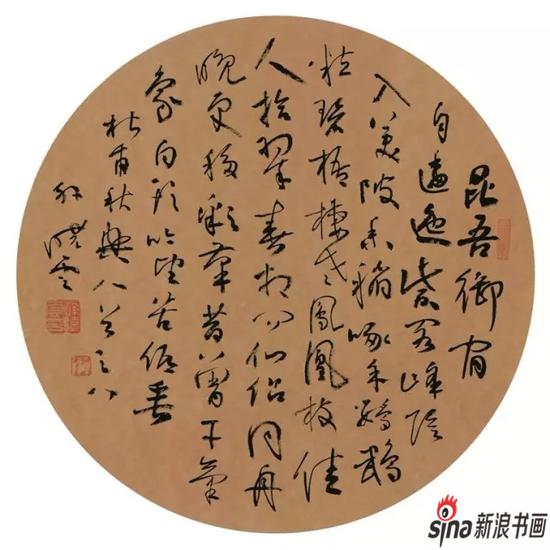 昆吾御宿
自逶迤紫閣峰陰
入渼陂香稻啄余鸚鵡
粒碧梧棲老鳳凰枝佳
人拾翠春相問仙侶同舟
晚更移彩筆昔曾干氣
象白頭吟望苦低垂
杜甫秋興八首之八
孫曉雲
sina新浪书画